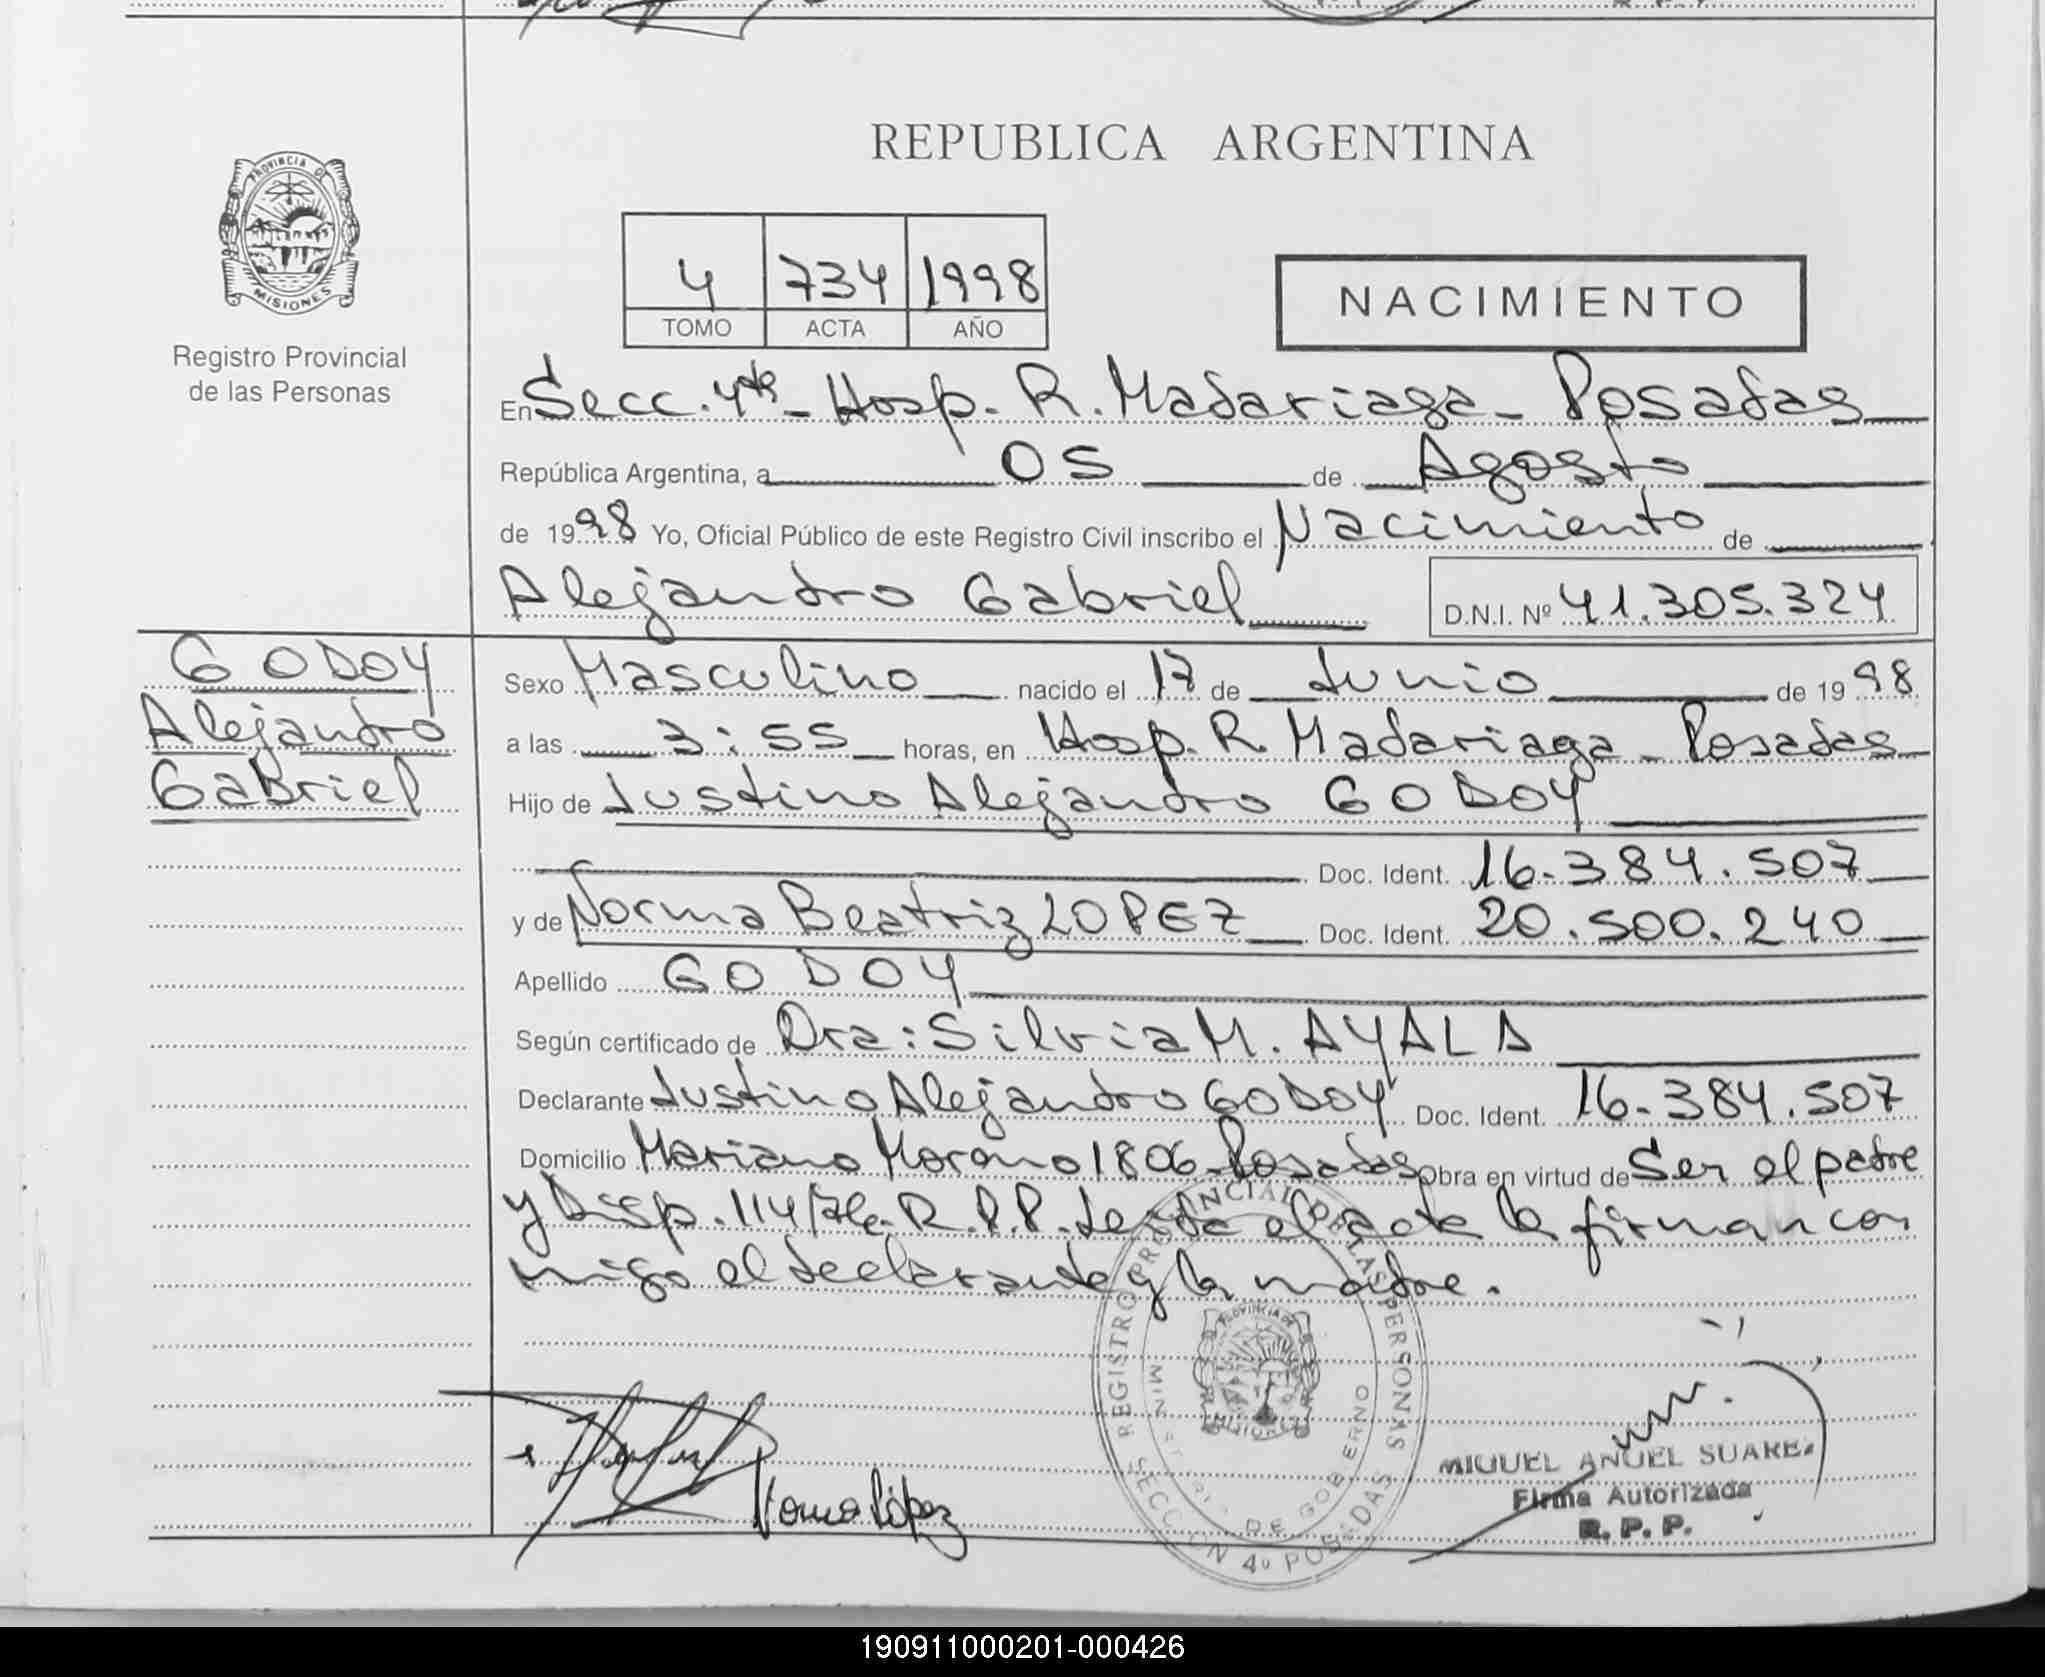 REPUBLICA ARGENTINA
PROVINCIA DE
MISIONES
Registro Provincial
de las Personas
4 734 1998
TOMO ACTA AÑO
NACIMIENTO
En Secc. 4ta - Hosp. R. Madariaga - Posadas
República Argentina, a 05 de Agosto
de 1998 Yo, Oficial Público de este Registro Civil inscribo el Nacimiento de
Alejandro Gabriel D.N.I. Nº 41.305.324
GODOY
Alejandro
Gabriel
Sexo Masculino nacido el 17 de Junio de 1998
a las 3:55 horas, en Hosp. R. Madariaga - Posadas
Hijo de Justino Alejandro GODOY
Doc. Ident. 16.384.507
y de Norma Beatriz LOPEZ Doc. Ident. 20.500.240
Apellido GODOY
Según certificado de Dra: Silvia M. AYALA
Declarante Justino Alejandro GODOY Doc. Ident. 16.384.507
Domicilio Mariano Moreno 1806 - Posadas Obra en virtud de Ser el padre
y Disp. 114 R.P.P. Leida el acta la firman con
migo el declarante y la madre.
REGISTRO PROVINCIAL DE LAS PERSONAS
MINISTERIO DE GOBIERNO
SECCION 4º POSADAS
Norma López
MIGUEL ANGEL SUAREZ
Firma Autorizada
R. P. P.
190911000201-000426